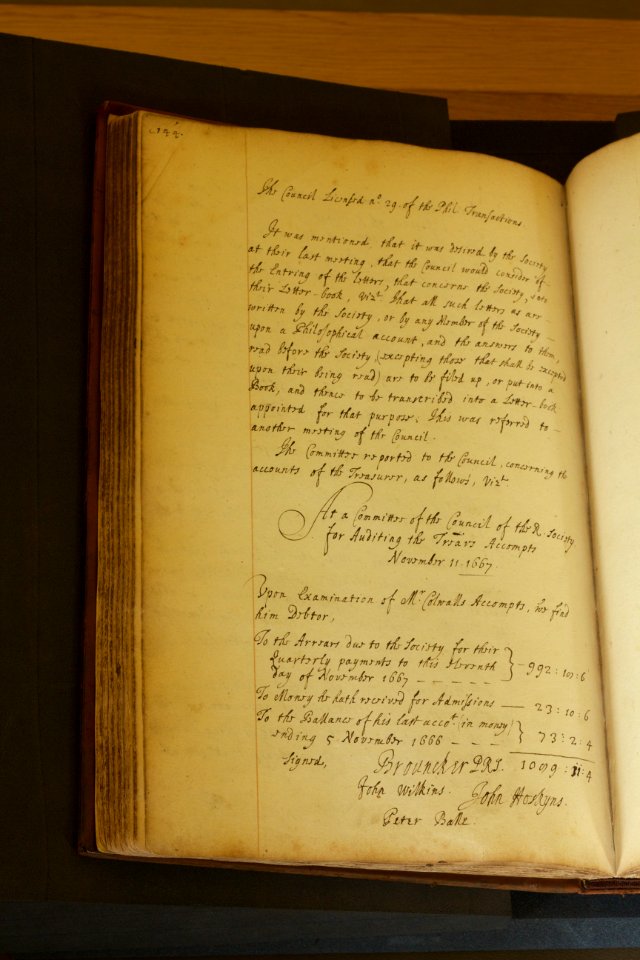 144.
The Council Licensed n.º 29. of the Phil. Transactions.
It was mentioned, that it was desired by the Society
at their last meeting, that the Council would consider of
the Entring of the letters, that concerns the Society, into
their Letter-book, vizt. that all such letters as are
written by the Society, or by any Member of the Society
upon a Philosophical account, and the answers to them,
read before the Society (excepting those that shall be excepted
upon their being read) are to be filed up, or put into a
Book, and thence to be transcribed into a Letter-book
appointed for that purpose. This was referred to
another meeting of the Council.
The Committee reported to the Council, concerning the
accounts of the Treasurer, as follows, vizt.
At a Committee of the Council of the R. Society
for Auditing the Trears Accompts
November 11. 1667.
Upon Examination of Mr. Colwalls Accompts, we find
him Debtor,
To the Arrears due to the Society for their
Quarterly payments to this Eleventh
day of November 1667 - - - - - 992: :6
To Money he hath received for Admissions — 23:10:6
To the Ballance of his last accot. (in money)
ending 5 November 1666 - - - 73:2:4
Signed, Brouncker PRS. :4
John Wilkins. John Hoskyns.
Peter Balle.